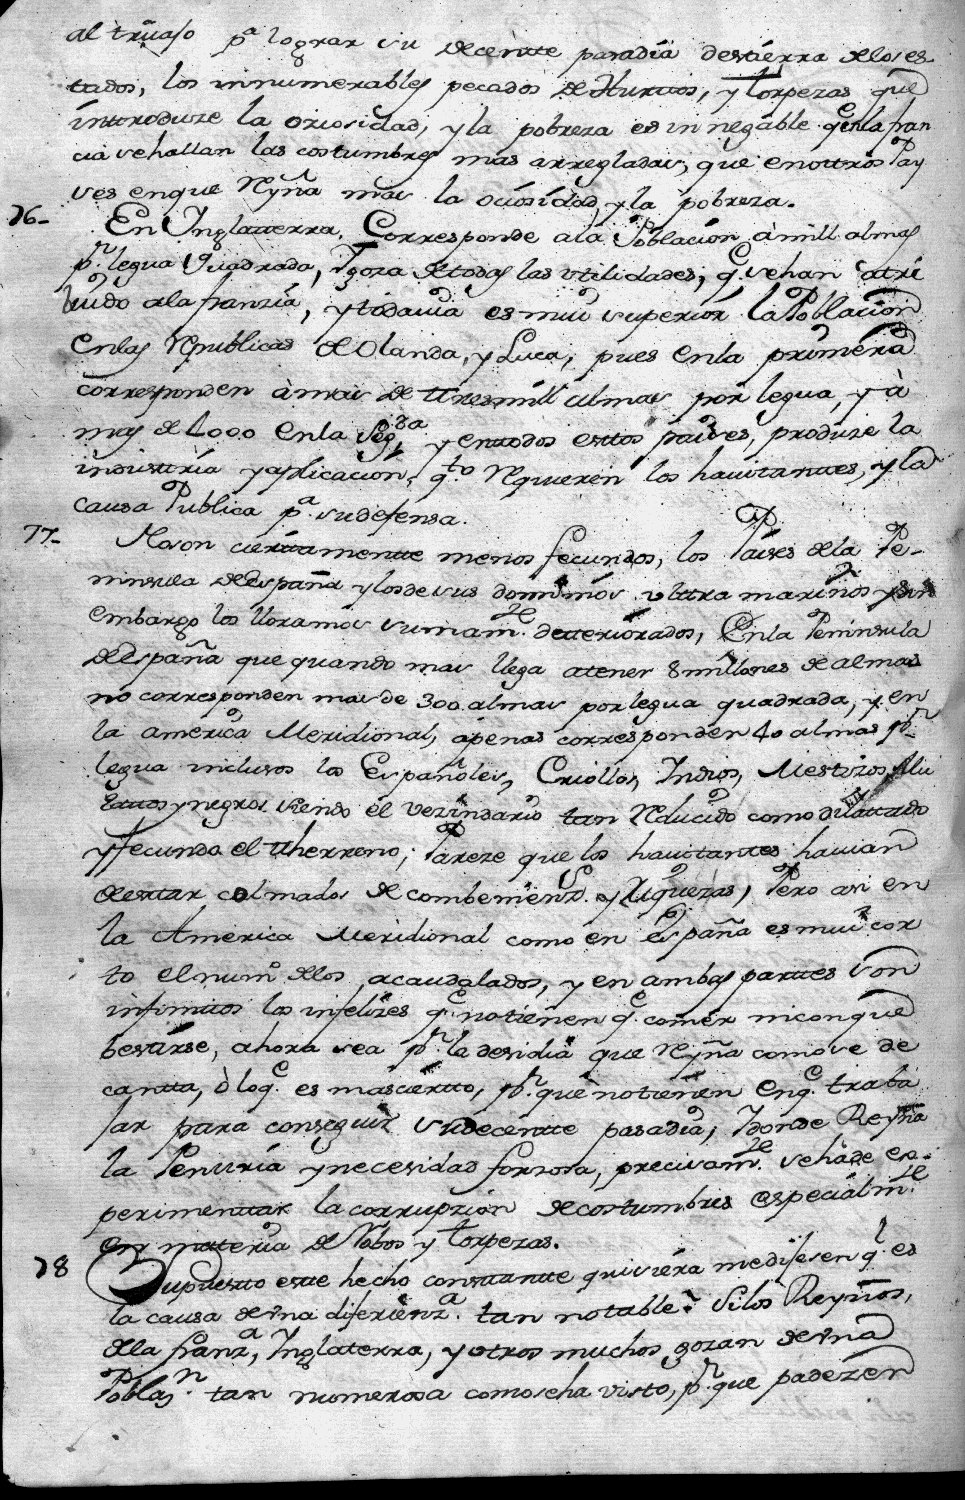 al travajo pᵃ lograr su decente pasadia destierra delos es-
tados, los innumerables pecados de Hurtos, y torpezas que
introduze la ociosidad, y la pobreza es innegable qᵉ enla fran
cia sehallan las costumbres mas arregladas, que enottros Pay
ses enque Reyna mas la ociosidad, y la pobreza.
76- En Inglatterra. Corresponde ala Poblacion à mill almas
pʳ legua Quadrada, Y goza detodas las utilidades, qᵉ sehan atri
buido ala franzia, y todavia es mui superior la Poblacion
enlas Republicas de Olanda, y Luca, pues enla primera
corresponden à mas de tres mill almas por legua, y à
mas de 4000 enla Segᵈᵃ y entodos estos paises, produze la
industria y aplicacion, qᵗᵒ requieren los havitantes, y la
causa Publica pᵃ sudefensa.
77- No son ciertamentte menos fecundos, los Paises dela Pe-
ninsula de España y losde sus dominios ultra marinos y sin
embargo los lloramos sumamᵗᵉ detteriorados, Enla Peninsula
de España que quando mas llega atener 8 millones de almas
no corresponden mas de 300 almas por legua quadrada, y en
la america Meridional, apenas corresponden 40 almas pʳ
legua inclusos los Españoles, Criollos, Indios, Mestizos, Mu
lattos y negros siendo el vezindario tan Reducido como dilattado
y fecundo el therreno; Pareze que los havitantes havian
de estar colmados de combenienzˢ y Riquezas, Pero asi en
la America Meridional como en España es mui cor
to el numᵒ delos acaudalados, y en ambas parttes son
infinitos los infelizes qᵉ notienen qᵉ comer niconque
bestirse, ahora sea pʳ la desidia que Reyna como se de
cantta, ò loqᵉ es mas ciertto, pʳ què notienen enqᵉ traba
jar para conseguir sudecentte pasadia, Y donde Reyna
la Penuria y necesidad forzosa, precisamᵗᵉ sehade es-
perimenttar la corrupzion de costumbres especialmᵗᵉ
en materia de Robos y torpezas.
78 Supuesto este hecho constantte quisiera medijesen qˡ es
la causa de una diferienzᵃ tan notable? Si los Reynos,
dela franzᵃ, Inglaterra, y otros muchos gozan de una
Poblazⁿ tan numerosa como seha visto, pʳ que padezen